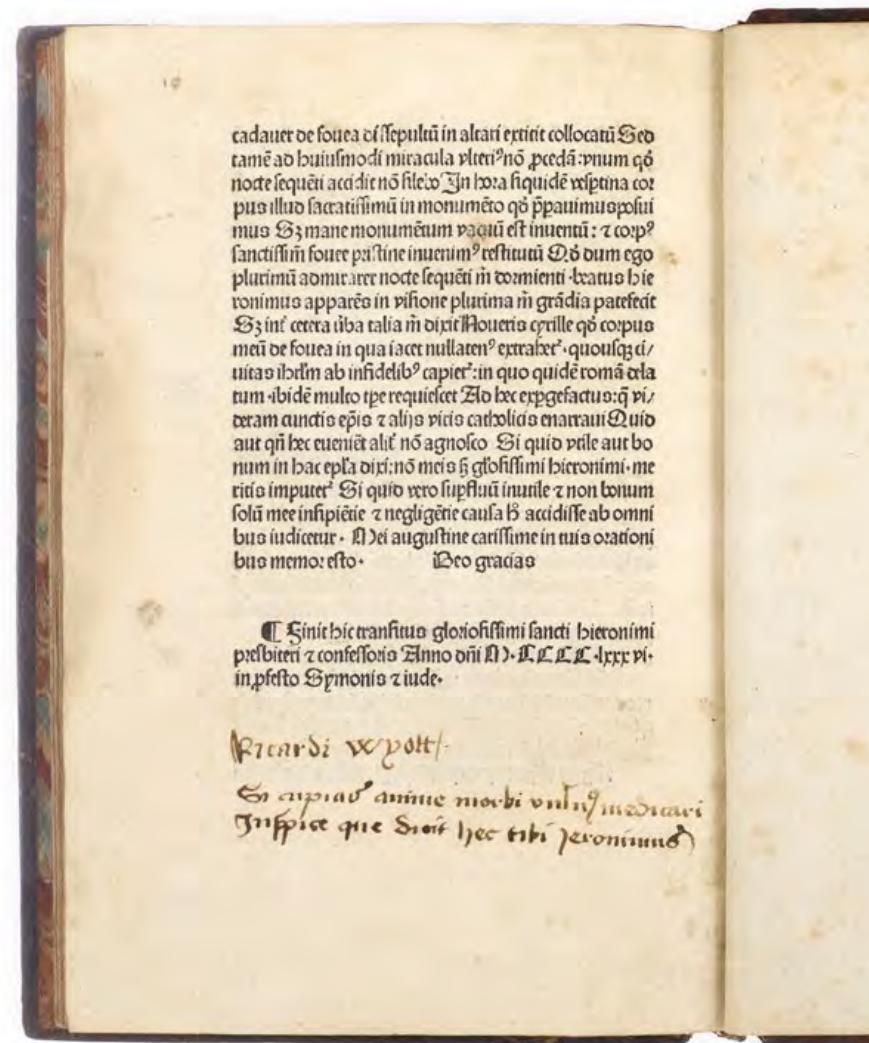 19
cadauer de fouea disſepultū in altari extitit collocatū Sed
tamē ad huiuſmodi miracula vlteriꝰ nō ꝓcedā: vnum qd̓
nocte ſequēti accidit nō ſilebo In hora ſiquidē veſꝑtina cor
pus illud ſacratiſſimū in monumēto qd̓ p̄pauimus poſui
mus Sꝫ mane monumētum vacuū est inuentū: ⁊ corpꝰ
ſanctiſſim̄ fouee priſtine inuenimꝰ reſtitutū Qd̓ dum ego
plurimū admirarer nocte ſequēti m̄ dormienti ·beatus hie
ronimus apparēs in viſione plurima m̄ grādia patefecit
Sꝫ int̓ cetera v̄ba talia m̄ dixit Noueris cyrille qd̓ corpus
meū de fouea in qua iacet nullatenꝰ extrahet᷑· quouſqꝫ ci/
uitas ihrl̄m ab infidelibꝰ capiet᷑: in quo quidē romā dela
tum ·ibidē multo tꝑe requieſcet Ad hec exꝑgefactus: q̄ vi/
deram cunctis ep̄is ⁊ alijs viris catholicis enarraui Quid
aut qn̄ hec eueniēt alit̓ nō agnoſco Si quid vtile aut bo
num in hac epl̄a dixi: nō meis ſꝫ gl̓oſiſſimi hieronimi· me
ritis imputet᷑ Si quid vero ſuꝑfluū inutile ⁊ non bonum
ſolū mee inſipiētie ⁊ negligētie cauſa h̓ accidiſſe ab omni
bus iudicetur · Mei auguſtine cariſſime in tuis orationi
bus memor eſto· Deo gracias
¶ Finit hic tranſitus glorioſiſſimi ſancti hieronimi
preſbiteri ⁊ confeſſoris Anno dn̄i M·CCCC·lxxxvi·
in ꝓfeſto Symonis ⁊ iude·
Ricardi Wyott/·
Si cupias anime morbi vuln̄ꝰ medicari
Inspice que dicit hec tibi Jeronimus